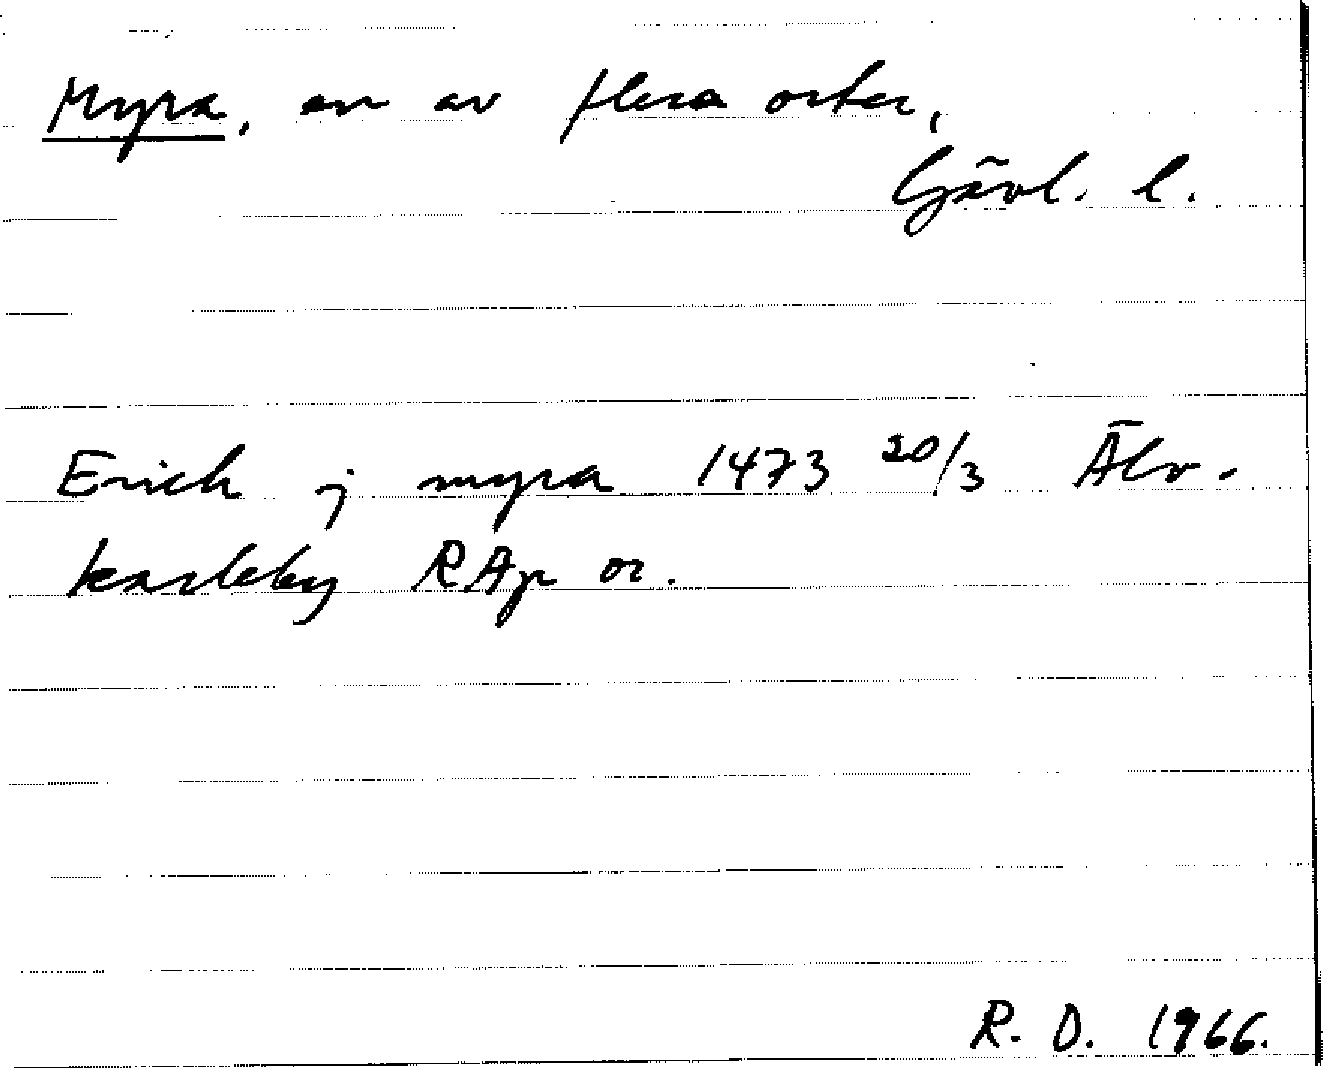 Myra, en av flera orter,
Gävl. l.
Erich j myra 1473 20/3 Älv-
karleby RAp or.
R. D. 1966.